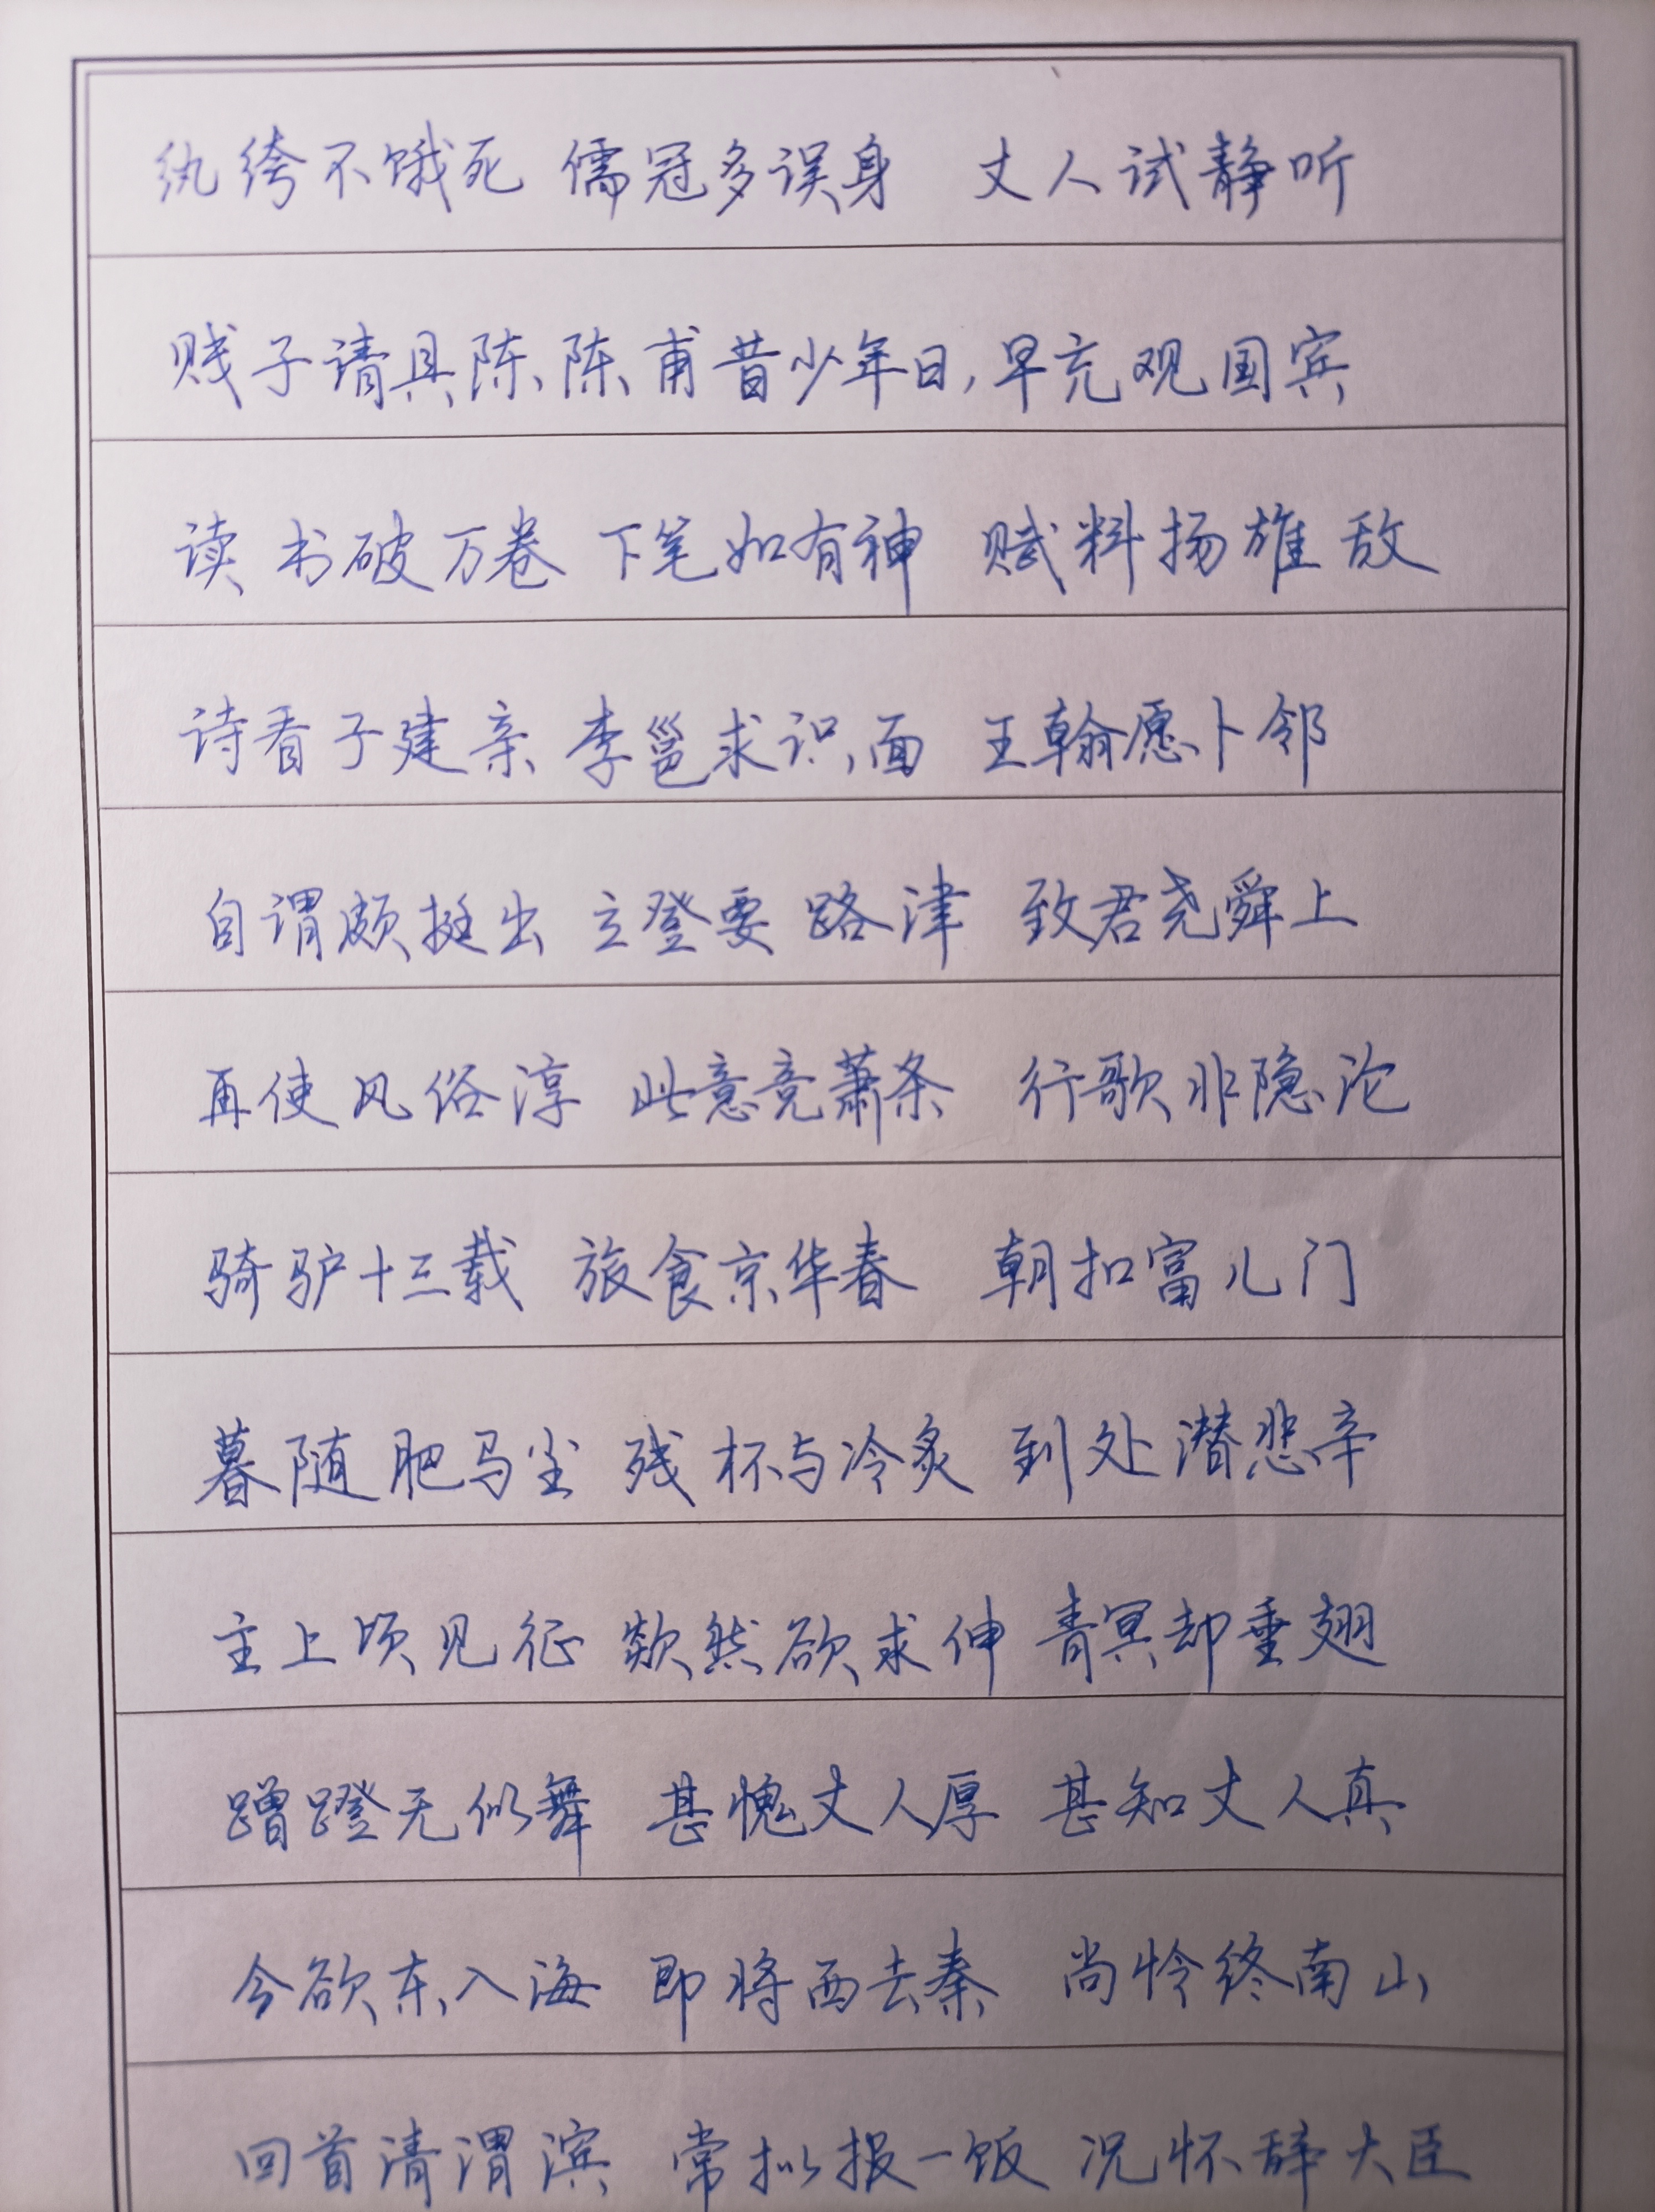 纨绔不饿死 儒冠多误身 丈人试静听
贱子请具陈、陈、甫昔少年日,早充观国宾
读书破万卷 下笔如有神 赋料扬雄敌
诗看子建亲 李邕求识面 王翰愿卜邻
自谓颇挺出 立登要路津 致君尧舜上
再使风俗淳 此意竟萧条 行歌非隐沦
骑驴十三载 旅食京华春 朝扣富儿门
暮随肥马尘 残杯与冷炙 到处潜悲辛
主上顷见征 欻然欲求伸 青冥却垂翅
蹭蹬无似舞 甚愧丈人厚 甚知丈人真
今欲东入海 即将西去秦 尚怜终南山
回首清渭滨 常拟报一饭 况怀辞大臣